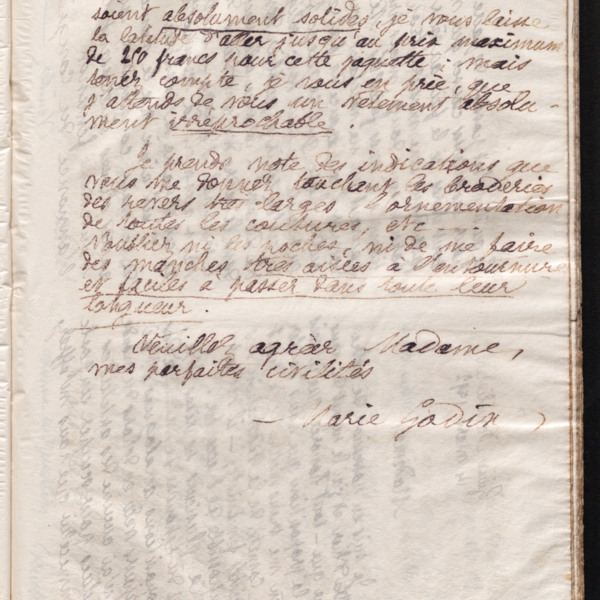 soient absolument solides, je vous laisse
la latitude d'aller jusqu'au prix maximum
de 250 francs pour cette jaquette ; mais
tenez compte, je vous en prie, que
j'attends de vous un vêtement absolu-
ment irréprochable.
Je prends note des indications que
vous me donnez touchant les broderies
des revers très larges l'ornementation
de toutes les coutures, etc....
N'oublier ni les poches, ni de me faire
des manches très aisées à l'entournure
et faciles à passer dans toute leur
longueur.
Veuillez agréer Madame,
mes parfaites civilités
— Marie Godin